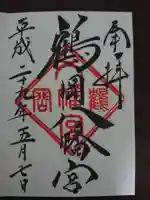 奉拝
鶴岡八幡宮
平成二十九年五月七日